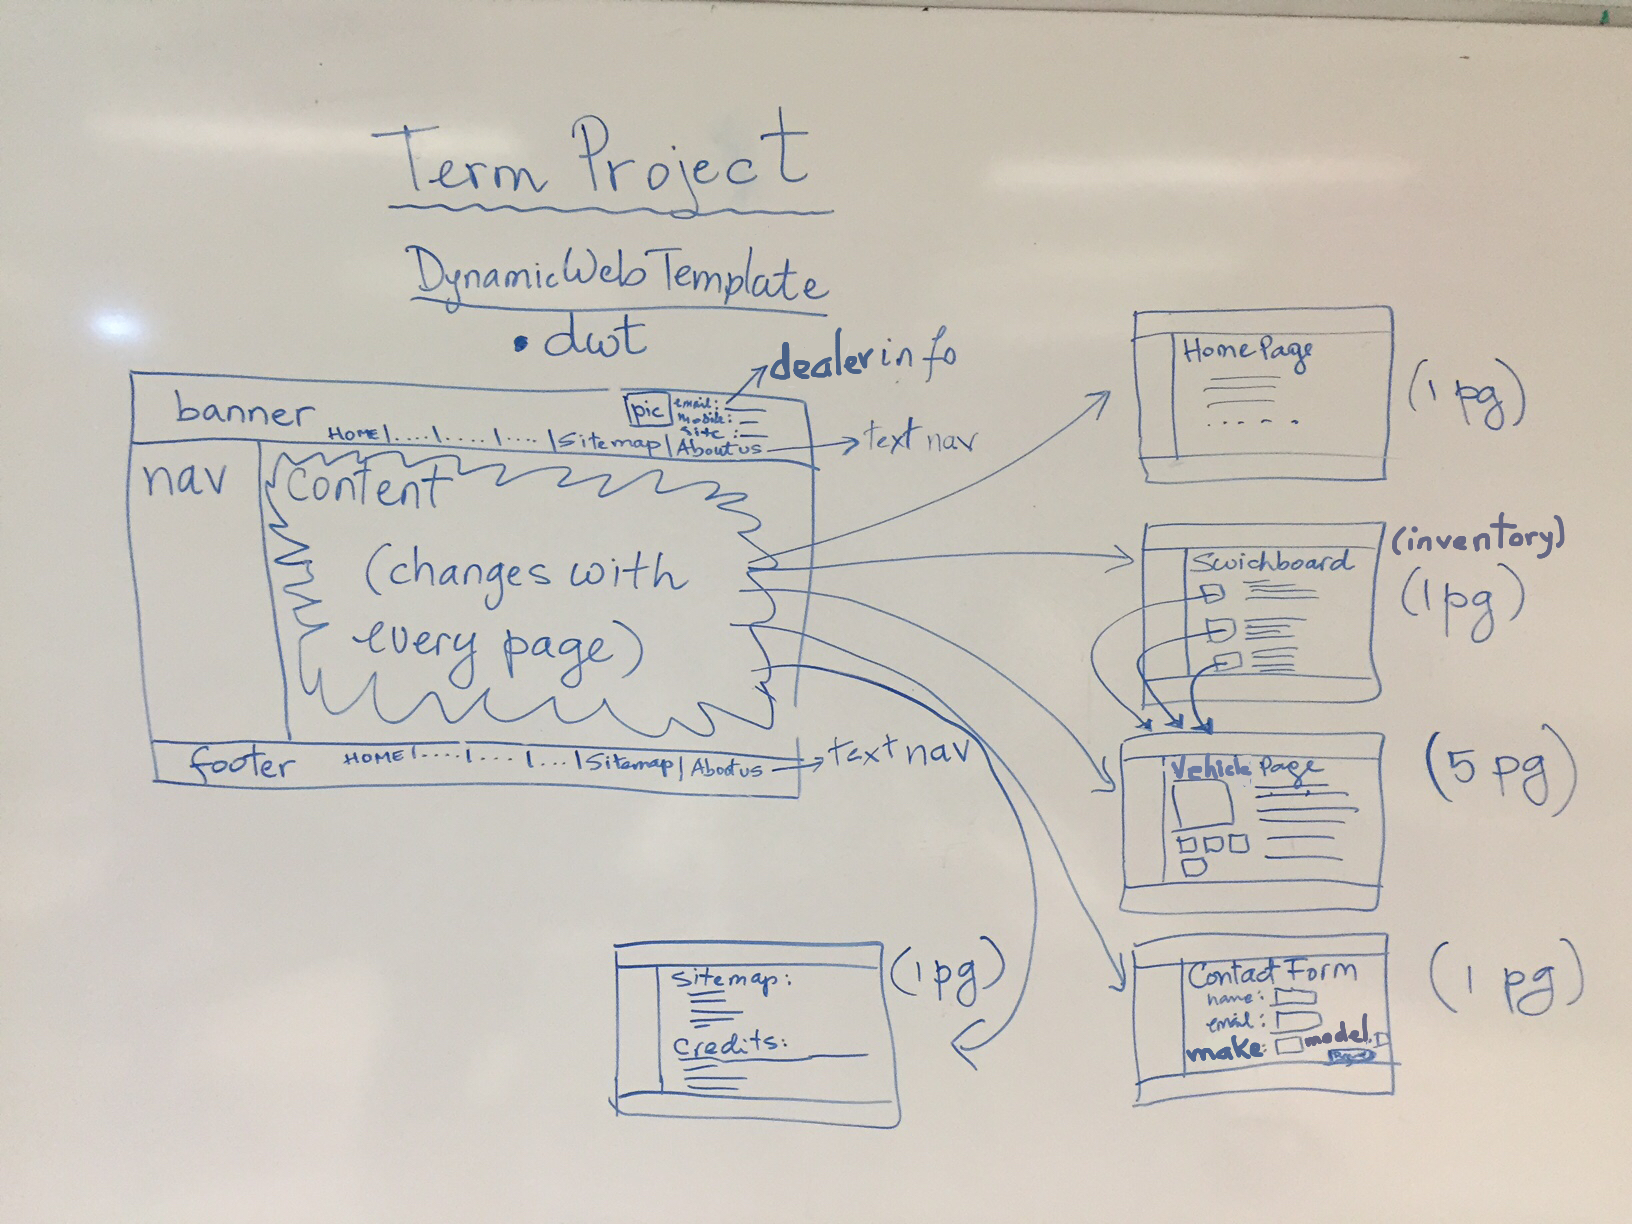 Term Project
DynamicWebTemplate
• dwt
dealer info
banner
pic
email:
mobile:
site:
HOME|....|....|....|Sitemap|About us
text nav
nav
Content
(changes with
every page)
footer
HOME|....|....|...|Sitemap|About us
text nav
HomePage
(1 pg)
Swichboard
(inventory)
(1pg)
Vehicle Page
(5 pg)
Contact Form
name:
email:
make: model.
(1 pg)
Sitemap:
Credits:
(1 pg)